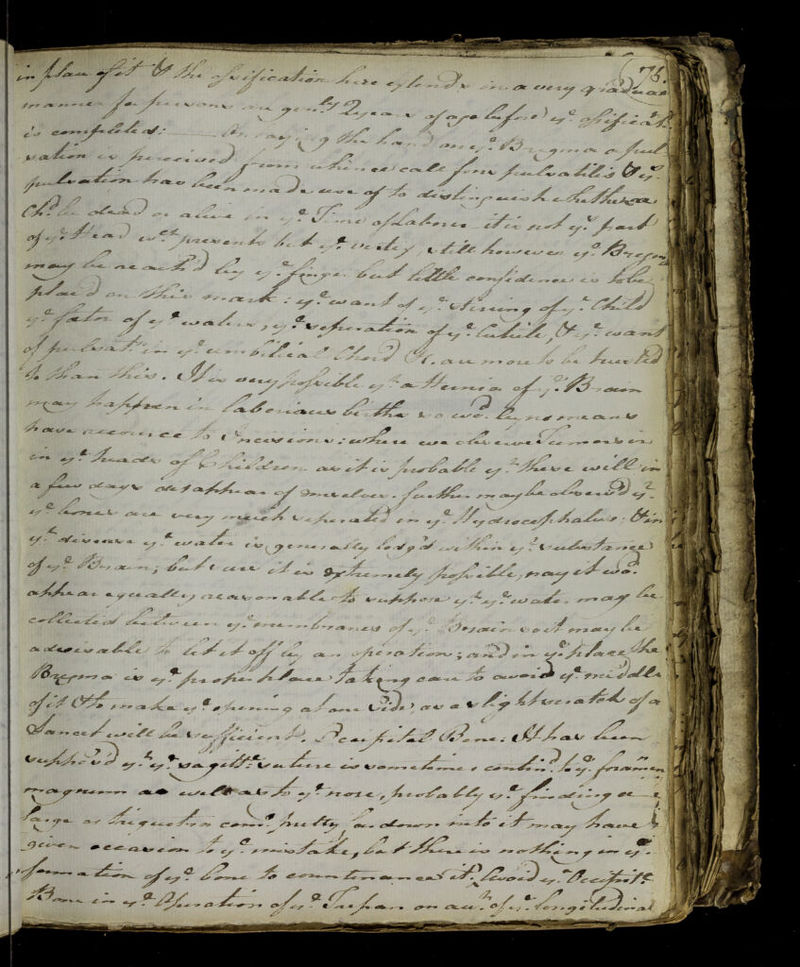 76.
in place of it & the ossification here extends in a very gradual
manner for persons are gen.ly 2 years of age before ye. ossificat.
is completed: On laying the hand on ye. Bregma a pul
sation is perceived from whence call fons pulsatilis & ys.
pulsation has been made use of to distinguish whether a
Chd. be dead or alive in ye. Time of Labour it is not ye. part
of ye. Head wch. presents but ye. vertex, still however ye. Bregma
may be reach'd by ye. finger but little confidence is to be
plac'd on this mark: ye. want of ye. stirring of ye. Child
ye. foetor of ye. waters, ye. seperation of ye. Cuticle, & ye. want
of pulsatn. in ye. umbilical Chord &c. are more to be trusted
to than this. It is very possible yt. a Hernia of ye. Brain
may happen in laborious births so wd. by no means
have recource to Incisions: where we observe Tumors in
in ye. heads of Children as it is probable yt. there will in
a few days disappear of themselves. further may be observ'd yt.
ye. bones are very much seperated in ye. Hydrocephalus; & in
yt. disease ye. water is generally lodg'd within ye. substance
of ye. Brain; but it is extremely possible, nay it wd.
appear equally reasonable to suppose yt. ye. water may be
collected between ye. membranes of ye. Brain so it may be
adviseable to let it off by an operation; and in ys. place the
Bregma is ye. proper place taking care to avoid ye. middle
of it & to make ye. opening at one side, as a slight scratch of a
Lancet will be sufficient. Occipital Bone: It has been
suppos'd yt. ye. sagittl. suture is sometimes contind. to ye. foramen
magnum as well as to ye. nose, probably ye. finding a
large os triquetrum pretty far down into it may have
given occasion to ys. mistake, but there is nothing in ye.
formation of ye. bone to countenance it. Avoid ye. Occipitl.
Bone in ye. Operation of ye. Trepan on acct. of ye. longitudinal